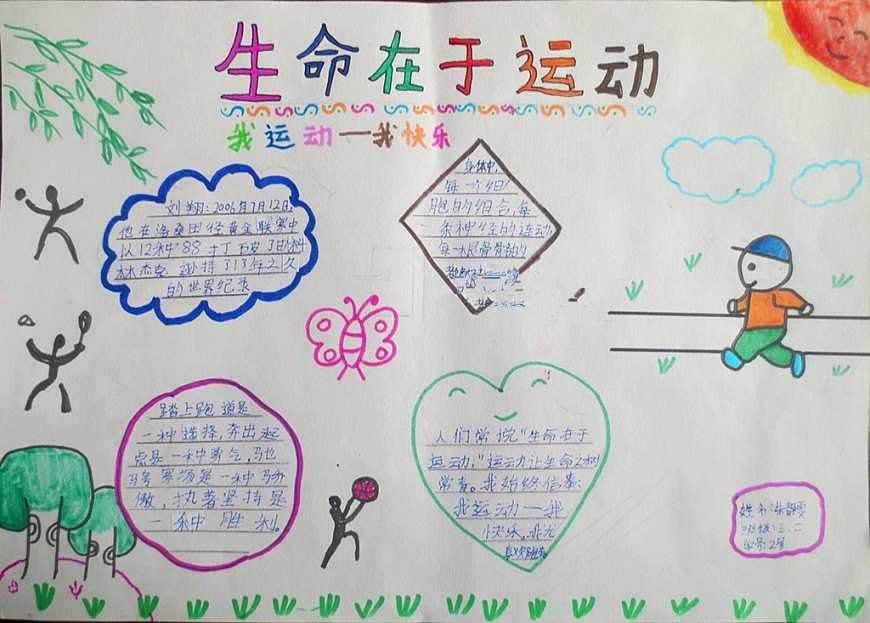 生命在于运动
我运动一我快乐
刘翔:2006年7月12日,
他在洛桑田径黄金联赛中
以12秒88打破了
林杰克 保持了13年之久
的世界纪录
身体中,
每一个细
胞的组合,每
一条神经的连动,
每一根骨骼的
踏上跑道是
一种选择,奔出起
点是一种勇气,驰
是一种骄
傲,执著坚持是
一种胜利。
人们常说"生命在于
运动,"运动让生命之树
常青。我始终信奉:
我运动一我
快乐。
姓名:
班级:三、二
学号:2号